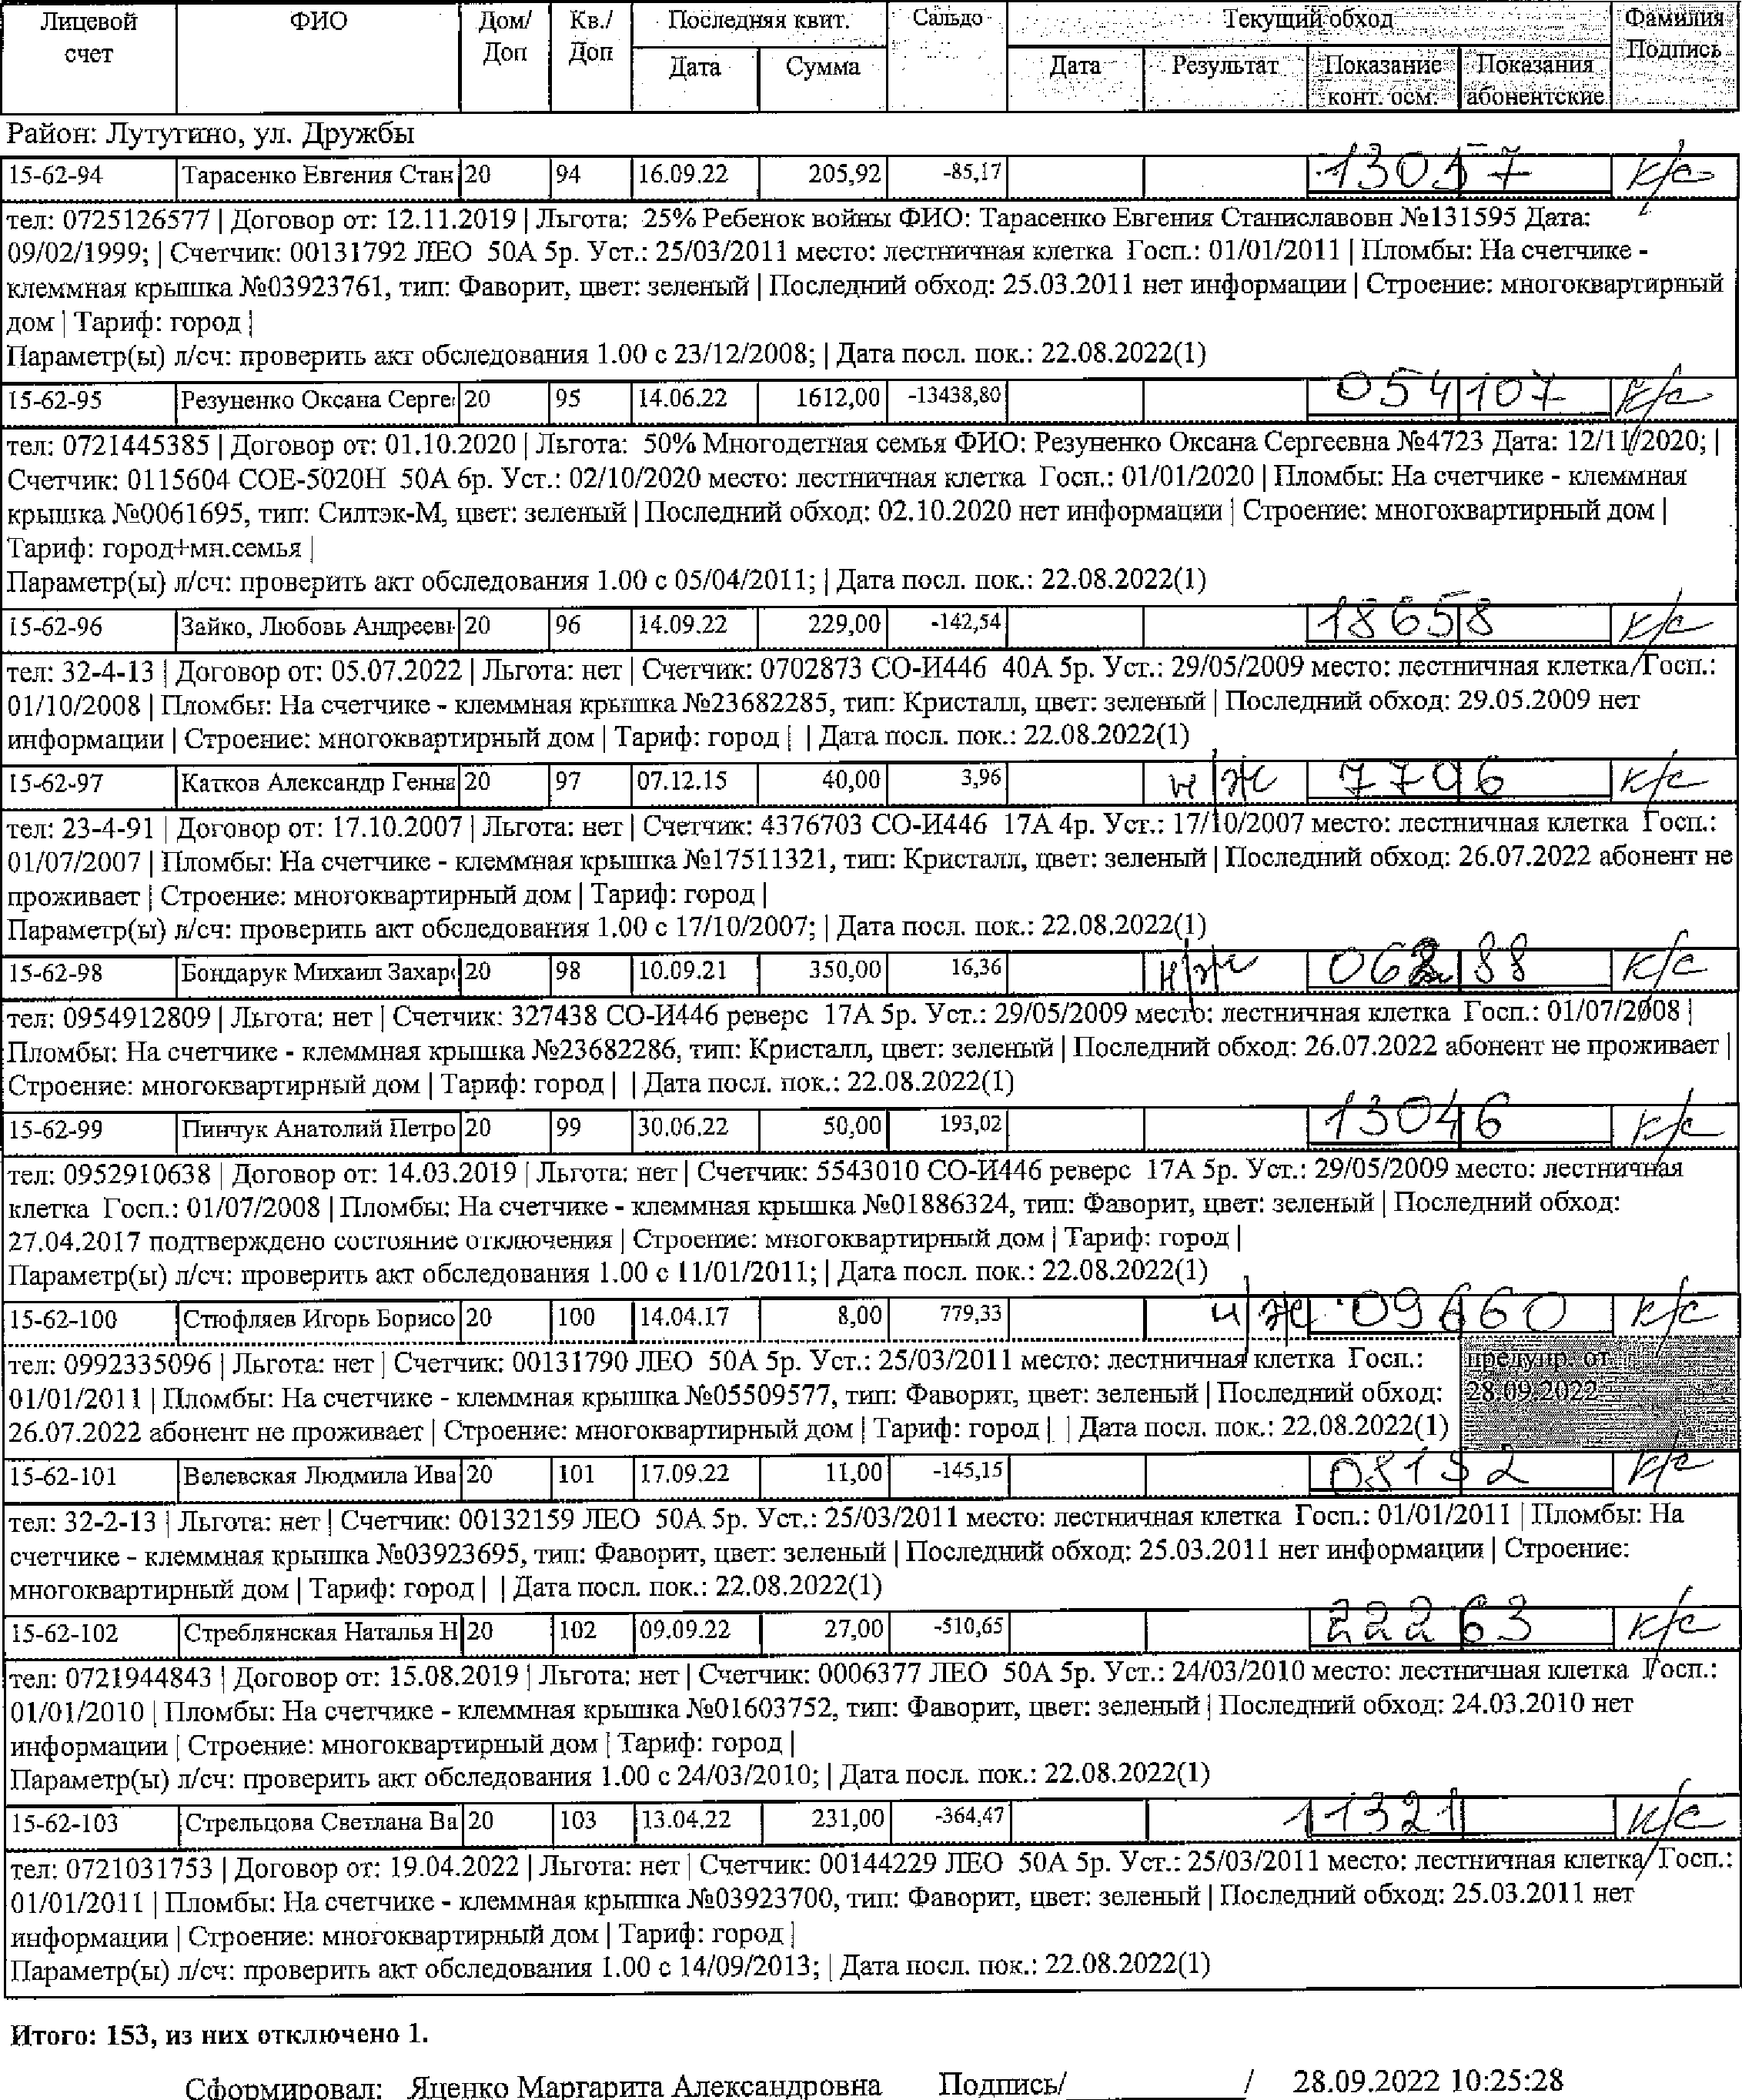 Лицевой счет | ФИО | Дом/Доп | Кв./Доп | Последняя квит. Дата | Сумма | Сальдо | Текущий обход Дата | Результат | Показание конт. осм. | Показания абонентские | Фамилия Подпись
Район: Лутугино, ул. Дружбы
15-62-94 Тарасенко Евгения Стан 20 94 16.09.22 205,92 -85,17 к/с
тел: 0725126577 | Договор от: 12.11.2019 | Льгота: 25% Ребенок войны ФИО: Тарасенко Евгения Станиславовн №131595 Дата:
09/02/1999; | Счетчик: 00131792 ЛЕО 50А 5р. Уст.: 25/03/2011 место: лестничная клетка Госп.: 01/01/2011 | Пломбы: На счетчике -
клеммная крышка №03923761, тип: Фаворит, цвет: зеленый | Последний обход: 25.03.2011 нет информации | Строение: многоквартирный
дом | Тариф: город |
Параметр(ы) л/сч: проверить акт обследования 1.00 с 23/12/2008; | Дата посл. пок.: 22.08.2022(1)
15-62-95 Резуненко Оксана Серге 20 95 14.06.22 1612,00 -13438,80 054107 к/с
тел: 0721445385 | Договор от: 01.10.2020 | Льгота: 50% Многодетная семья ФИО: Резуненко Оксана Сергеевна №4723 Дата: 12/11/2020; |
Счетчик: 0115604 СОЕ-5020Н 50А 6р. Уст.: 02/10/2020 место: лестничная клетка Госп.: 01/01/2020 | Пломбы: На счетчике - клеммная
крышка №0061695, тип: Силтэк-М, цвет: зеленый | Последний обход: 02.10.2020 нет информации | Строение: многоквартирный дом |
Тариф: город+мн.семья |
Параметр(ы) л/сч: проверить акт обследования 1.00 с 05/04/2011; | Дата посл. пок.: 22.08.2022(1)
15-62-96 Зайко, Любовь Андреевн 20 96 14.09.22 229,00 -142,54 18658 к/с
тел: 32-4-13 | Договор от: 05.07.2022 | Льгота: нет | Счетчик: 0702873 СО-И446 40А 5р. Уст.: 29/05/2009 место: лестничная клетка Госп.:
01/10/2008 | Пломбы: На счетчике - клеммная крышка №23682285, тип: Кристалл, цвет: зеленый | Последний обход: 29.05.2009 нет
информации | Строение: многоквартирный дом | Тариф: город | | Дата посл. пок.: 22.08.2022(1)
15-62-97 Катков Александр Генна 20 97 07.12.15 40,00 3,96 н/ж 7706 к/с
тел: 23-4-91 | Договор от: 17.10.2007 | Льгота: нет | Счетчик: 4376703 СО-И446 17А 4р. Уст.: 17/10/2007 место: лестничная клетка Госп.:
01/07/2007 | Пломбы: На счетчике - клеммная крышка №17511321, тип: Кристалл, цвет: зеленый | Последний обход: 26.07.2022 абонент не
проживает | Строение: многоквартирный дом | Тариф: город |
Параметр(ы) л/сч: проверить акт обследования 1.00 с 17/10/2007; | Дата посл. пок.: 22.08.2022(1)
15-62-98 Бондарук Михаил Захар 20 98 10.09.21 350,00 16,36 н/ж к/с
тел: 0954912809 | Льгота: нет | Счетчик: 327438 СО-И446 реверс 17А 5р. Уст.: 29/05/2009 место: лестничная клетка Госп.: 01/07/2008 |
Пломбы: На счетчике - клеммная крышка №23682286, тип: Кристалл, цвет: зеленый | Последний обход: 26.07.2022 абонент не проживает |
Строение: многоквартирный дом | Тариф: город | | Дата посл. пок.: 22.08.2022(1)
15-62-99 Пинчук Анатолий Петро 20 99 30.06.22 50,00 193,02 13046 к/с
тел: 0952910638 | Договор от: 14.03.2019 | Льгота: нет | Счетчик: 5543010 СО-И446 реверс 17А 5р. Уст.: 29/05/2009 место: лестничная
клетка Госп.: 01/07/2008 | Пломбы: На счетчике - клеммная крышка №01886324, тип: Фаворит, цвет: зеленый | Последний обход:
27.04.2017 подтверждено состояние отключения | Строение: многоквартирный дом | Тариф: город |
Параметр(ы) л/сч: проверить акт обследования 1.00 с 11/01/2011; | Дата посл. пок.: 22.08.2022(1)
15-62-100 Стюфляев Игорь Борисо 20 100 14.04.17 8,00 779,33 н/ж 09660 к/с
тел: 0992335096 | Льгота: нет | Счетчик: 00131790 ЛЕО 50А 5р. Уст.: 25/03/2011 место: лестничная клетка Госп.: предупр. от
01/01/2011 | Пломбы: На счетчике - клеммная крышка №05509577, тип: Фаворит, цвет: зеленый | Последний обход: 28.09.2022
26.07.2022 абонент не проживает | Строение: многоквартирный дом | Тариф: город | | Дата посл. пок.: 22.08.2022(1)
15-62-101 Велевская Людмила Ива 20 101 17.09.22 11,00 -145,15 08132 к/с
тел: 32-2-13 | Льгота: нет | Счетчик: 00132159 ЛЕО 50А 5р. Уст.: 25/03/2011 место: лестничная клетка Госп.: 01/01/2011 | Пломбы: На
счетчике - клеммная крышка №03923695, тип: Фаворит, цвет: зеленый | Последний обход: 25.03.2011 нет информации | Строение:
многоквартирный дом | Тариф: город | | Дата посл. пок.: 22.08.2022(1)
15-62-102 Стреблянская Наталья Н 20 102 09.09.22 27,00 -510,65 22263 к/с
тел: 0721944843 | Договор от: 15.08.2019 | Льгота: нет | Счетчик: 0006377 ЛЕО 50А 5р. Уст.: 24/03/2010 место: лестничная клетка Госп.:
01/01/2010 | Пломбы: На счетчике - клеммная крышка №01603752, тип: Фаворит, цвет: зеленый | Последний обход: 24.03.2010 нет
информации | Строение: многоквартирный дом | Тариф: город |
Параметр(ы) л/сч: проверить акт обследования 1.00 с 24/03/2010; | Дата посл. пок.: 22.08.2022(1)
15-62-103 Стрельцова Светлана Ва 20 103 13.04.22 231,00 -364,47 11321 к/с
тел: 0721031753 | Договор от: 19.04.2022 | Льгота: нет | Счетчик: 00144229 ЛЕО 50А 5р. Уст.: 25/03/2011 место: лестничная клетка Госп.:
01/01/2011 | Пломбы: На счетчике - клеммная крышка №03923700, тип: Фаворит, цвет: зеленый | Последний обход: 25.03.2011 нет
информации | Строение: многоквартирный дом | Тариф: город |
Параметр(ы) л/сч: проверить акт обследования 1.00 с 14/09/2013; | Дата посл. пок.: 22.08.2022(1)
Итого: 153, из них отключено 1.
Сформировал: Яценко Маргарита Александровна Подпись/__________/ 28.09.2022 10:25:28